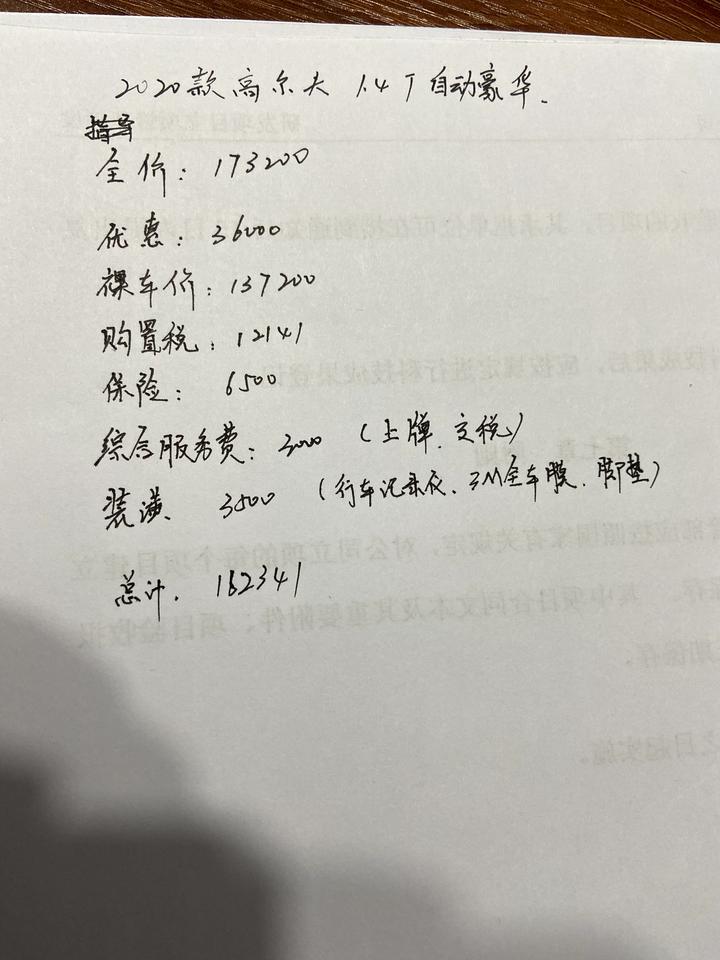 2020款高尔夫 1.4T自动豪华.
指导
全价：173200
优惠：36000
裸车价：137200
购置税：12141
保险：6500
综合服务费：3000（上牌、交税）
装潢、3500（行车记录仪、3M全车膜、脚垫）
总计、162341